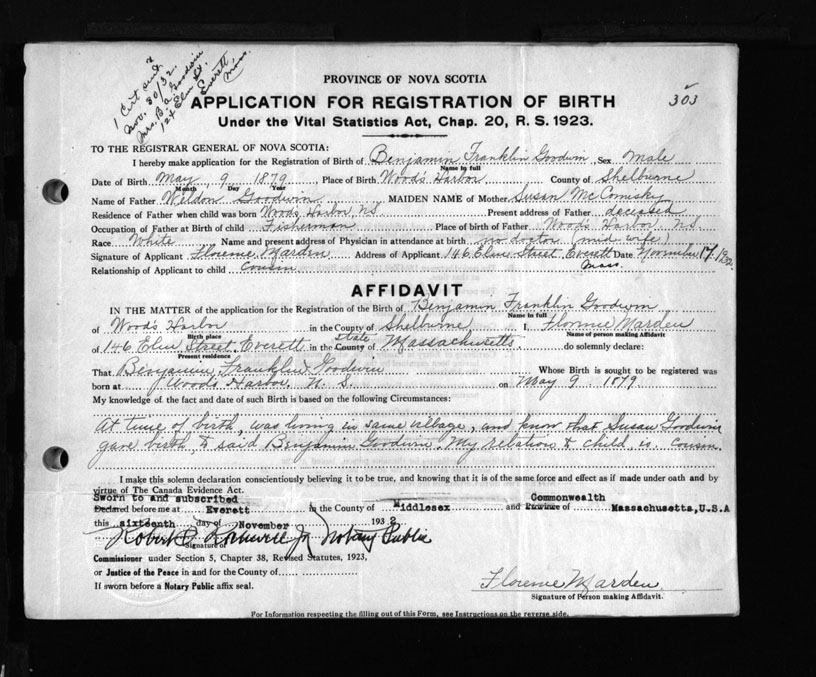 1 Cert send
Nov. 30/32.
Mrs. B. A. Goodwin
124 Elm St.
Everett
Mass.
303
PROVINCE OF NOVA SCOTIA
APPLICATION FOR REGISTRATION OF BIRTH
Under the Vital Statistics Act, Chap. 20, R. S. 1923.
TO THE REGISTRAR GENERAL OF NOVA SCOTIA:
I hereby make application for the Registration of Birth of Benjamin Franklin Goodwin, Sex Male
Name in full
Date of Birth May 9 1879 Place of Birth Wood's Harbor County of Shelburne
Month Day Year
Name of Father Weldon Goodwin MAIDEN NAME of Mother Susan McComisky
Residence of Father when child was born Woods Harbor NS Present address of Father deceased
Occupation of Father at Birth of child Fisherman Place of birth of Father Wood's Harbor N.S.
Race White Name and present address of Physician in attendance at birth no doctor (mid wife)
Signature of Applicant Florence Marden Address of Applicant 146 Elm Street Everett Date November 17, 1932.
Mass.
Relationship of Applicant to child cousin
AFFIDAVIT
IN THE MATTER of the application for the Registration of the Birth of Benjamin Franklin Goodwin
Name in full
of Wood's Harbor in the County of Shelburne I, Florence Marden
Birth place Name of person making Affidavit
of 146 Elm Street, Everett in the County of state Massachusetts do solemnly declare:
Present residence
That Benjamin Franklin Goodwin Whose Birth is sought to be registered was
born at Woods Harbor, N. S. on May 9. 1879
My knowledge of the fact and date of such Birth is based on the following Circumstances:
At time of birth, was living in same village, and know that Susan Goodwin
gave birth to said Benjamin Goodwin. My relation to child is cousin.
I make this solemn declaration conscientiously believing it to be true, and knowing that it is of the same force and effect as if made under oath and by
virtue of The Canada Evidence Act.
Sworn to and subscribed Commonwealth
Declared before me at Everett in the County of Middlesex and Province of Massachusetts, U.S.A
this sixteenth day of November 1932
Robert Jr Notary Public
Signature of
Commissioner under Section 5, Chapter 38, Revised Statutes, 1923,
or Justice of the Peace in and for the County of
If sworn before a Notary Public affix seal.
Florence Marden
Signature of Person making Affidavit.
For Information respecting the filling out of this Form, see Instructions on the reverse side.